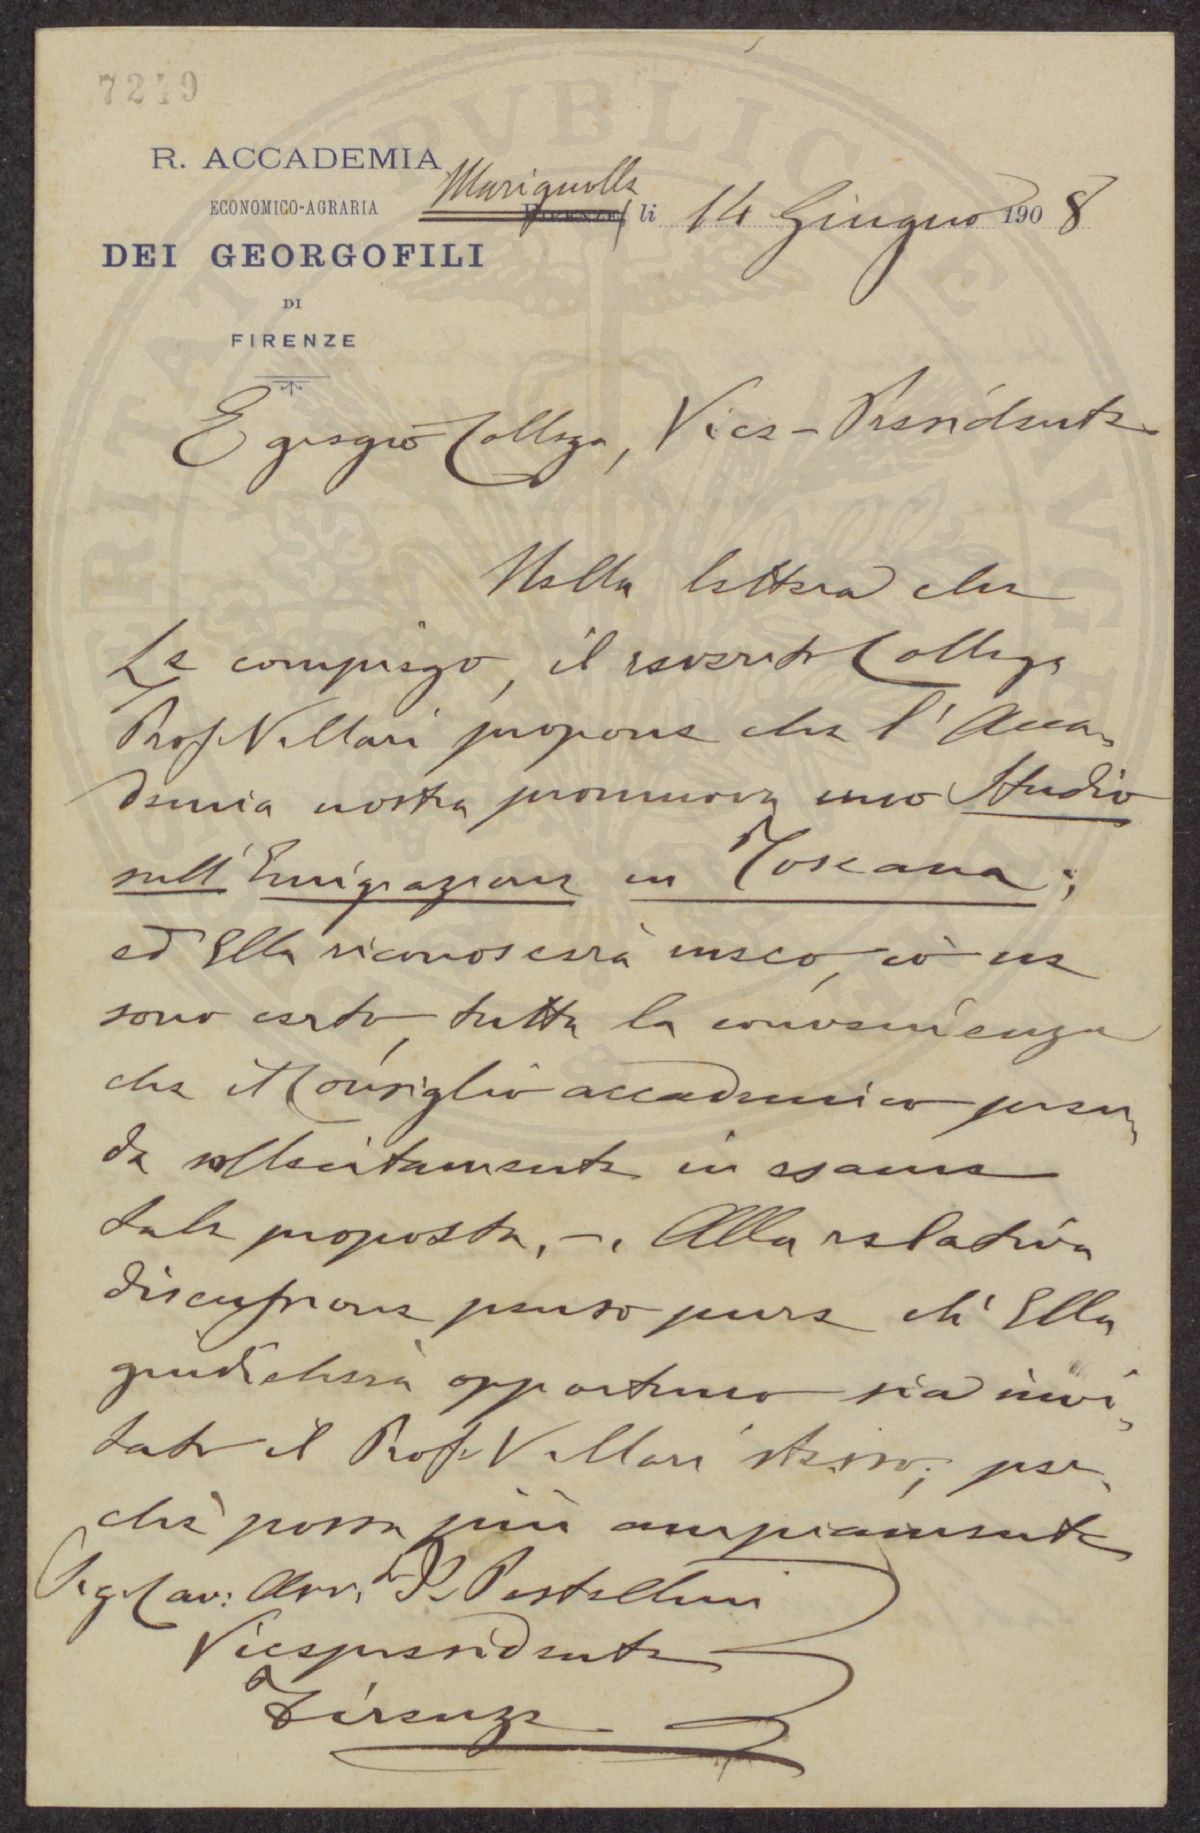 7249
R. ACCADEMIA
ECONOMICO-AGRARIA
DEI GEORGOFILI
DI
FIRENZE
Marignolle
FIRENZE, li 14 Giugno 1908
Egregio Collega, Vice-Presidente
Nella lettera che
Le compiego, il reverito Collega
Prof. Villari propone che l'Acca-
demia nostra promuova uno Studio
sull'Emigrazione in Toscana;
ed Ella riconoscerà meco, io ne
sono certo, tutta la convenienza
che il Consiglio accademico pren-
da sollecitamente in esame
tale proposta. -. Alla relativa
discussione penso pure ch'Ella
giudicherà opportuno sia invi-
tato il Prof. Villari stesso; per-
chè possa più ampiamente
Sig. Cav: Avv. P. Pestellini
Vicepresidente
Firenze